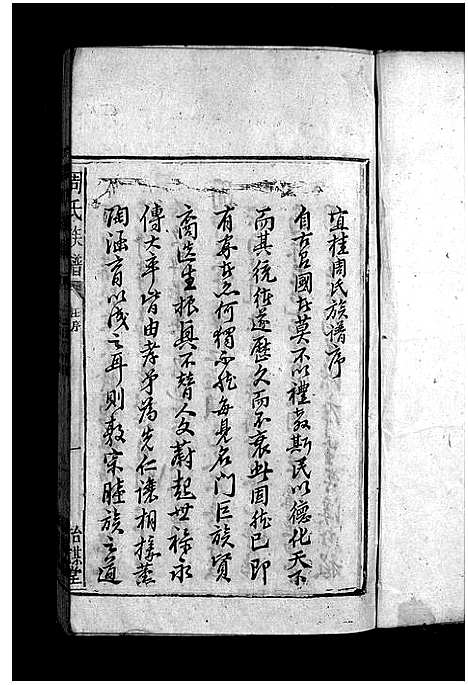 宜桂周氏族譜序
自古召國者莫不以禮教斯民以德化天下
而其統緒遂歷久而不衰此固然已即
有家者亦何獨不然每見名門巨族賢
裔迭生振興不替人文蔚起世祿永
傳大率皆由孝弟為先仁讓相接薰
陶涵育以成之耳則敦宗睦族之道
周氏族譜
序
一
怡謀堂